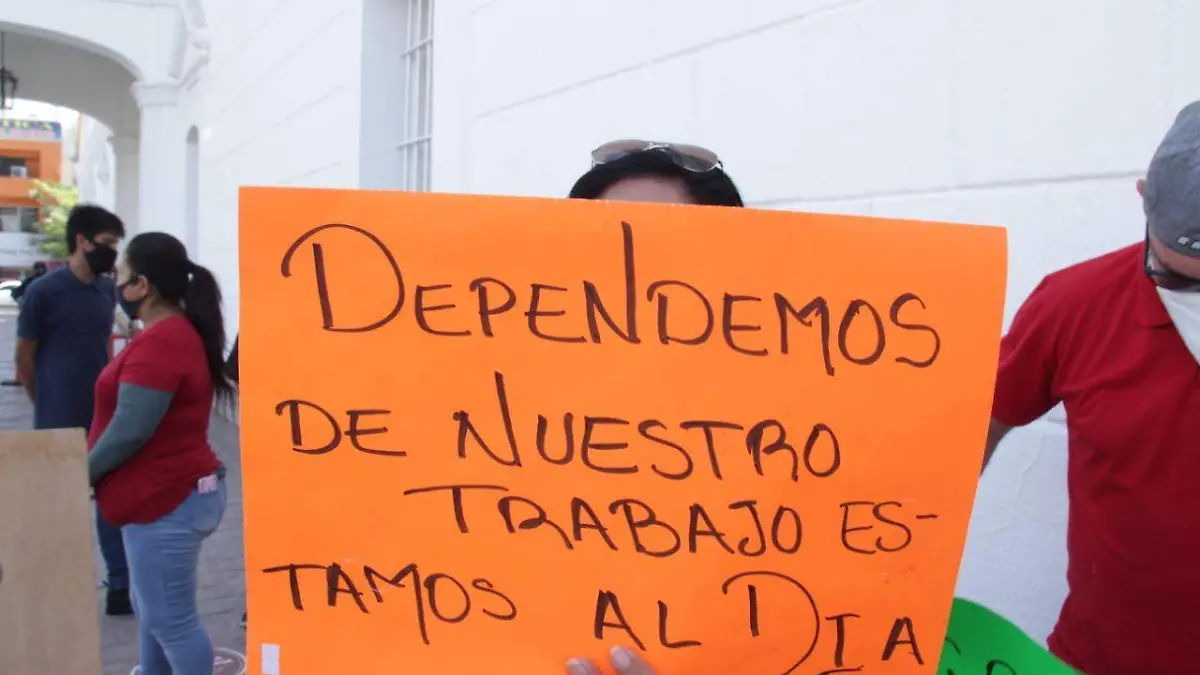 DEPENDEMOS
DE NUESTRO
TRABAJO ES-
TAMOS AL DIA